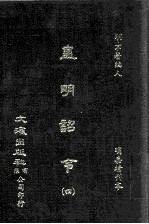 明不著編人
皇明詔令(四)
明嘉靖刊本
文海出版社有限公司印行